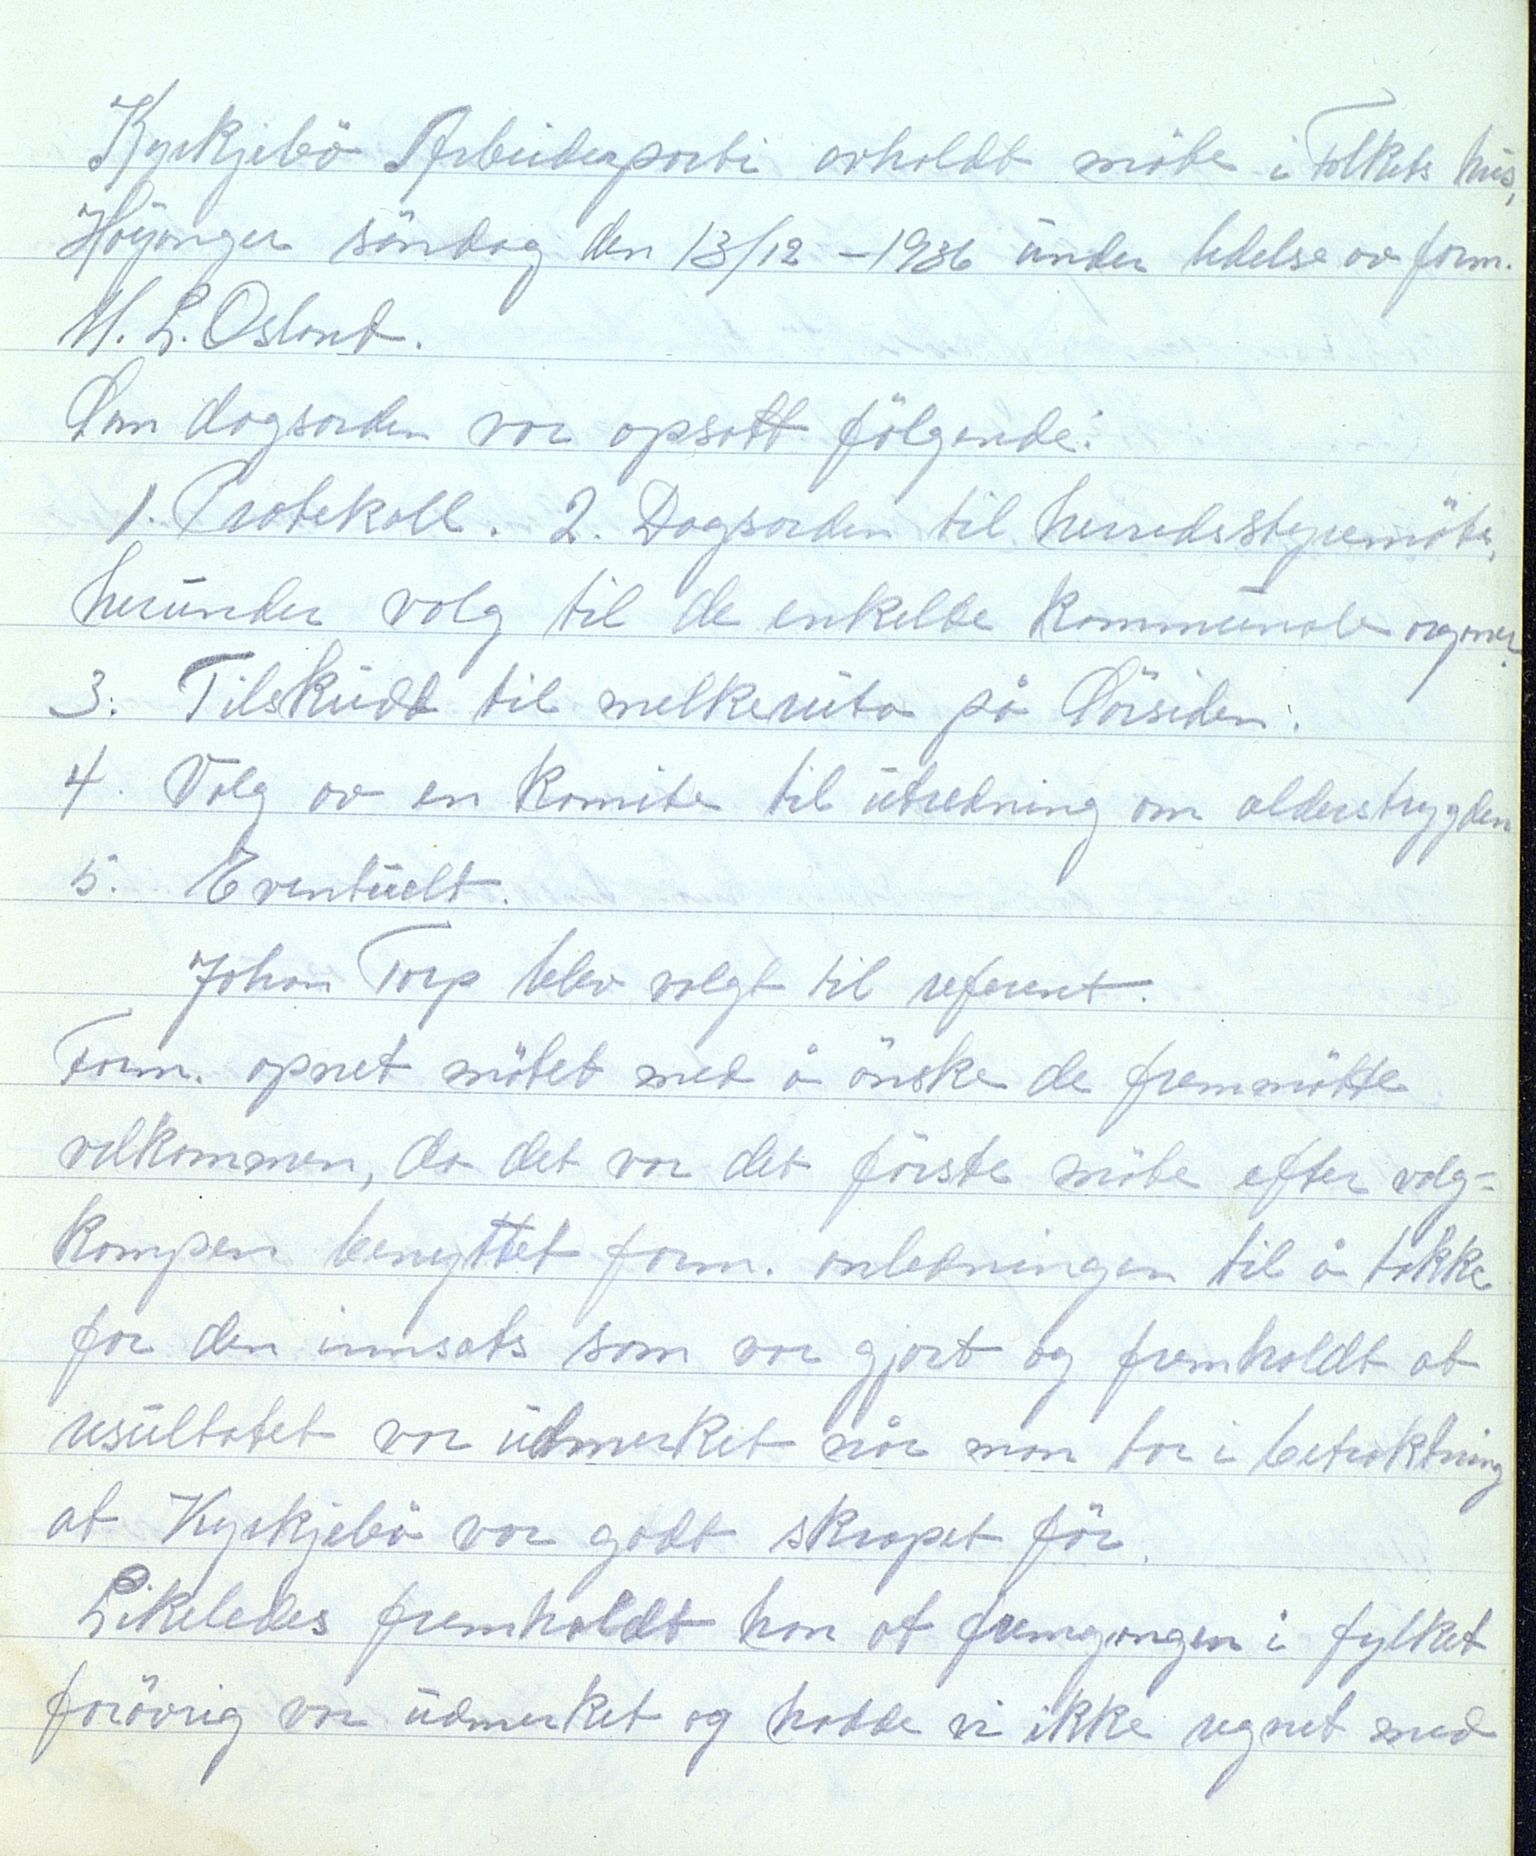 Kyrkjebö Arbeiderparti avholdt möte i Folkets hus,
Höyanger söndag den 13/12 - 1936 under ledelse av form.
M. L. Osland.
Som dagsorden var opsatt fölgende:
1. Protokoll. 2. Dagsorden til herredsstyremöte,
herunder valg til de enkelte kommunale organer.
3. Tilskudt til melkeruta på Sörsiden.
4. Valg av en komite til utredning om alderstrygden
5. Eventuelt.
Johan Torp blev valgt til referent.
Form. opnet mötet med å önske de fremmötte
velkommen, da det var det förste möte efter valg=
kampen benyttet form. anledningen til å takke
for den innsats som var gjort og fremholdt at
resultatet var udmerket når man tar i betraktning
at Kyrkjebö var godt skrapet för.
Likeledes fremholdt han at fremgangen i fylket
forövrig var udmerket og hadde vi ikke regnet med